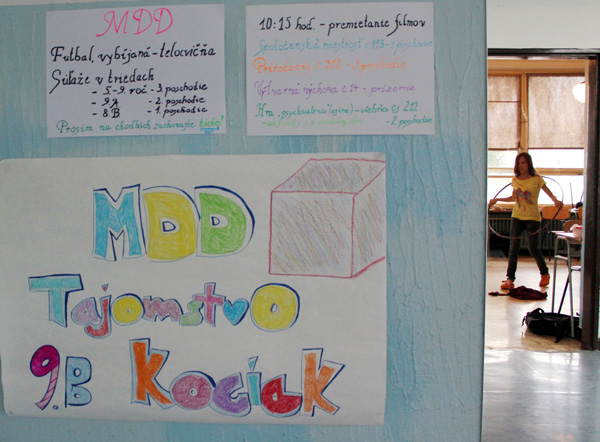 MDD
Futbal, vybíjaná - telocvičňa
Súťaže v triedach
- 5.-9. roč. - 3. poschodie
- 9.A - 2. poschodie
- 8.B - 1. poschodie
Prosím na chodbách zachovajte ticho!
10:15 hod. - premietanie filmov
Spoločenská miestnosť č. 113 - 1. poschodie
Prírodopis č. 312 - 3. poschodie
Výtvarná výchova č. 14 - prízemie
Hra "psychiatria" - učebňa č. 212
- 2. poschodie
MDD
Tajomstvo
9.B Kociek